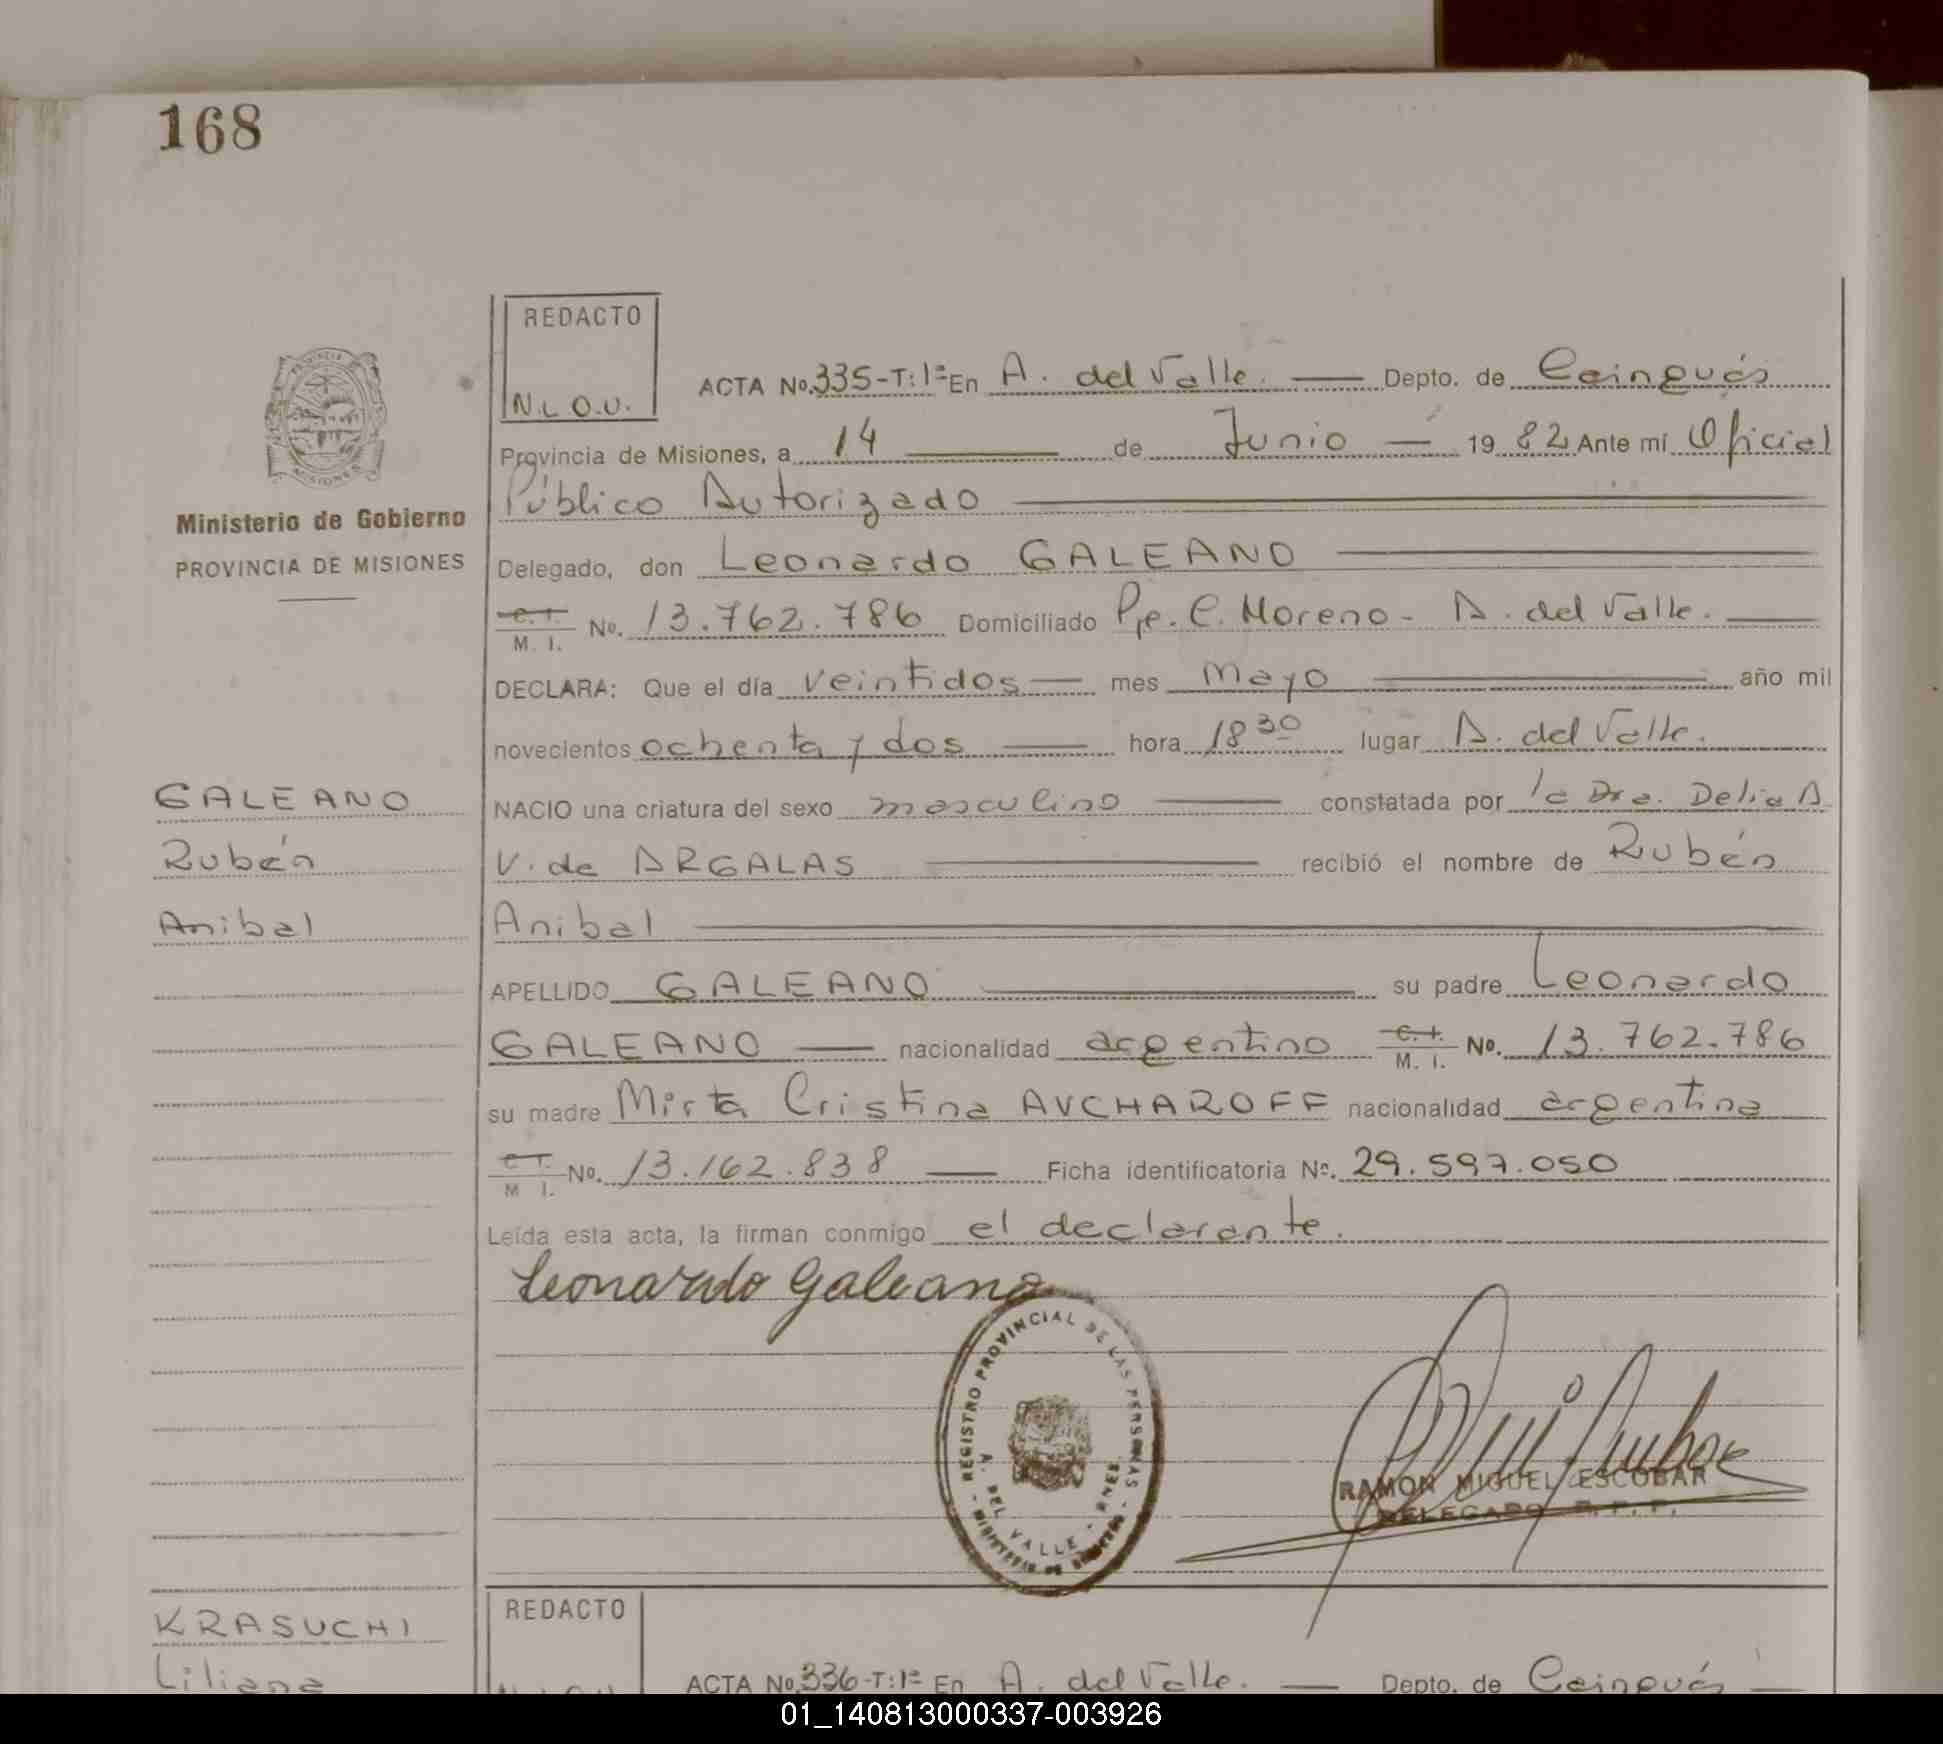 168
REDACTO
N.L.O.U.
ACTA No. 335-T:1ª En A. del Valle. Depto. de Cainguás
Provincia de Misiones, a 14 de Junio 1982 Ante mí Oficial
Público Autorizado
Ministerio de Gobierno
PROVINCIA DE MISIONES
Delegado, don Leonardo GALEANO
C. I. M. I. No. 13.762.786 Domiciliado Pje. C. Moreno - A. del Valle.
DECLARA: Que el día veintidos mes mayo año mil
novecientos ochenta y dos hora 18 30 lugar A. del Valle.
GALEANO
NACIO una criatura del sexo masculino constatada por la Dra. Delia A.
Rubén
V. de ARGALAS recibió el nombre de Rubén
Anibal
Anibal
APELLIDO GALEANO su padre Leonardo
GALEANO nacionalidad argentino C. I. M. I. No. 13.762.786
su madre Mirta Cristina AVCHAROFF nacionalidad argentina
C. I. M. I. No. 13.162.838 Ficha identificatoria No. 29.597.050
Leída esta acta, la firman conmigo el declarante.
Leonardo Galeano
REGISTRO PROVINCIAL DE LAS PERSONAS - MINISTERIO DE GOBIERNO -
A. DEL VALLE - MNES.
RAMON MIGUEL ESCOBAR
DELEGADO R. P. P.
KRASUCHI
REDACTO
Liliana
ACTA No. 336-T:1ª En A. del Valle. Depto. de Cainguás
01_140813000337-003926